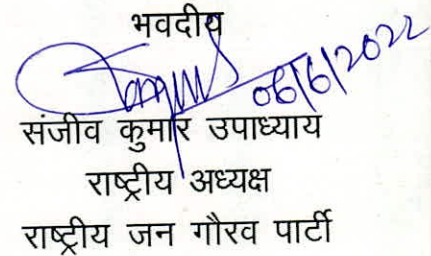 भवदीय
06/6/2022
संजीव कुमार उपाध्याय
राष्ट्रीय अध्यक्ष
राष्ट्रीय जन गौरव पार्टी